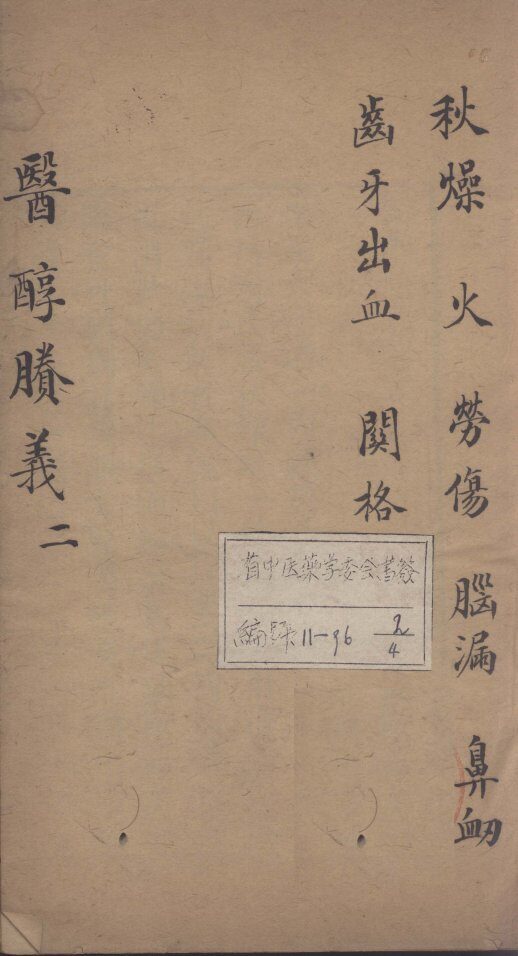 秋燥 火 勞傷 腦漏 鼻衄
齒牙出血 関格
醫醇賸義 二
省中医藥学委会書籤
編號 11-96 2/4